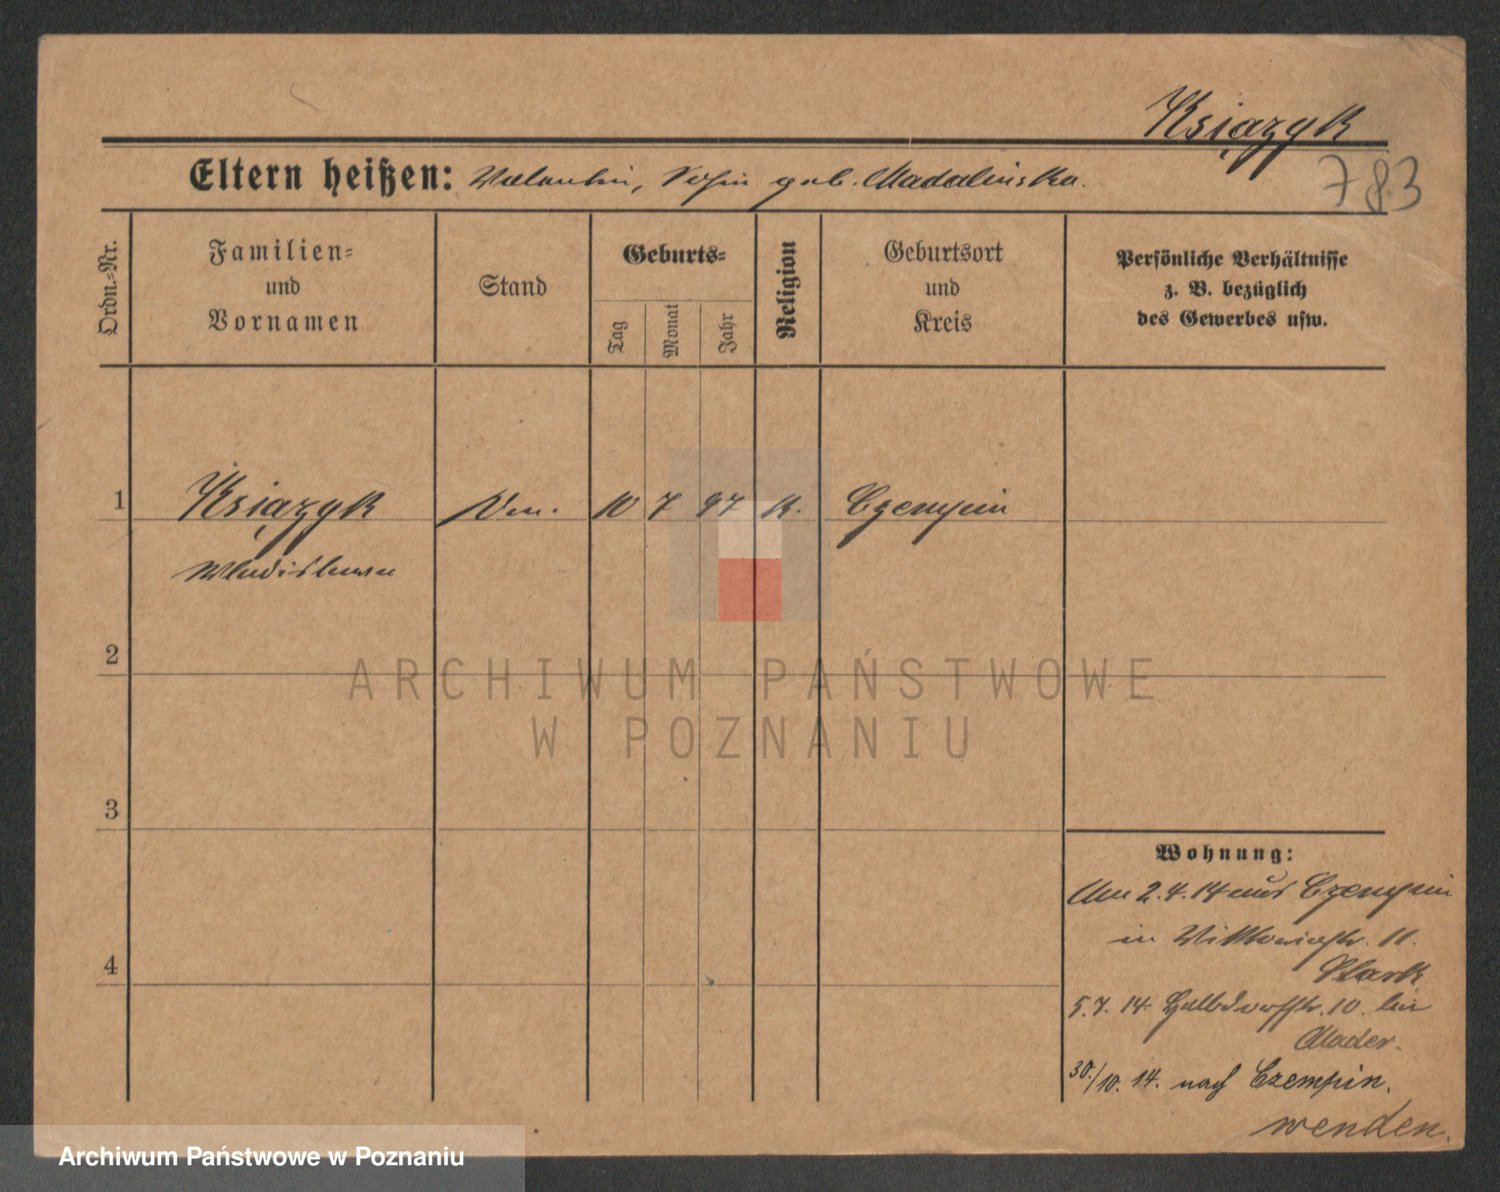 Książyk
783
Eltern heißen: Valentin, geb. Madalinska.
Ordn.-Nr.
Familien-
und
Vornamen
Stand
Geburts-
Tag
Monat
Jahr
Religion
Geburtsort
und
Kreis
Persönliche Verhältnisse
z. B. bezüglich
des Gewerbes usw.
1
Książyk
10 7 97 k. Czempin
Wladislawa
2
3
4
Wohnung:
Am 2.4.14 aus Czempin
in Viktoriastr. 11.
5.7.14 Halbdorfstr. 10. bei
Mader.
30./10. 14. nach Czempin.
wenden.
ARCHIWUM PAŃSTWOWE
W POZNANIU
Archiwum Państwowe w Poznaniu